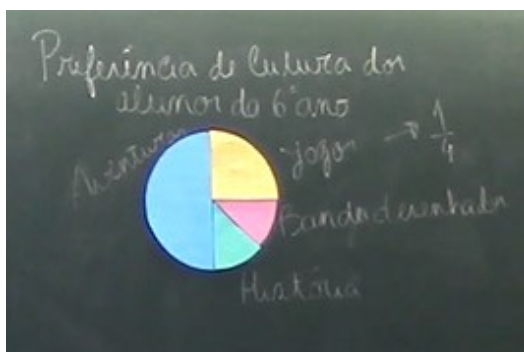 Preferência de leitura dos
alunos do 6º ano
Aventura
Jogos → 1/4
Banda desenhada
História